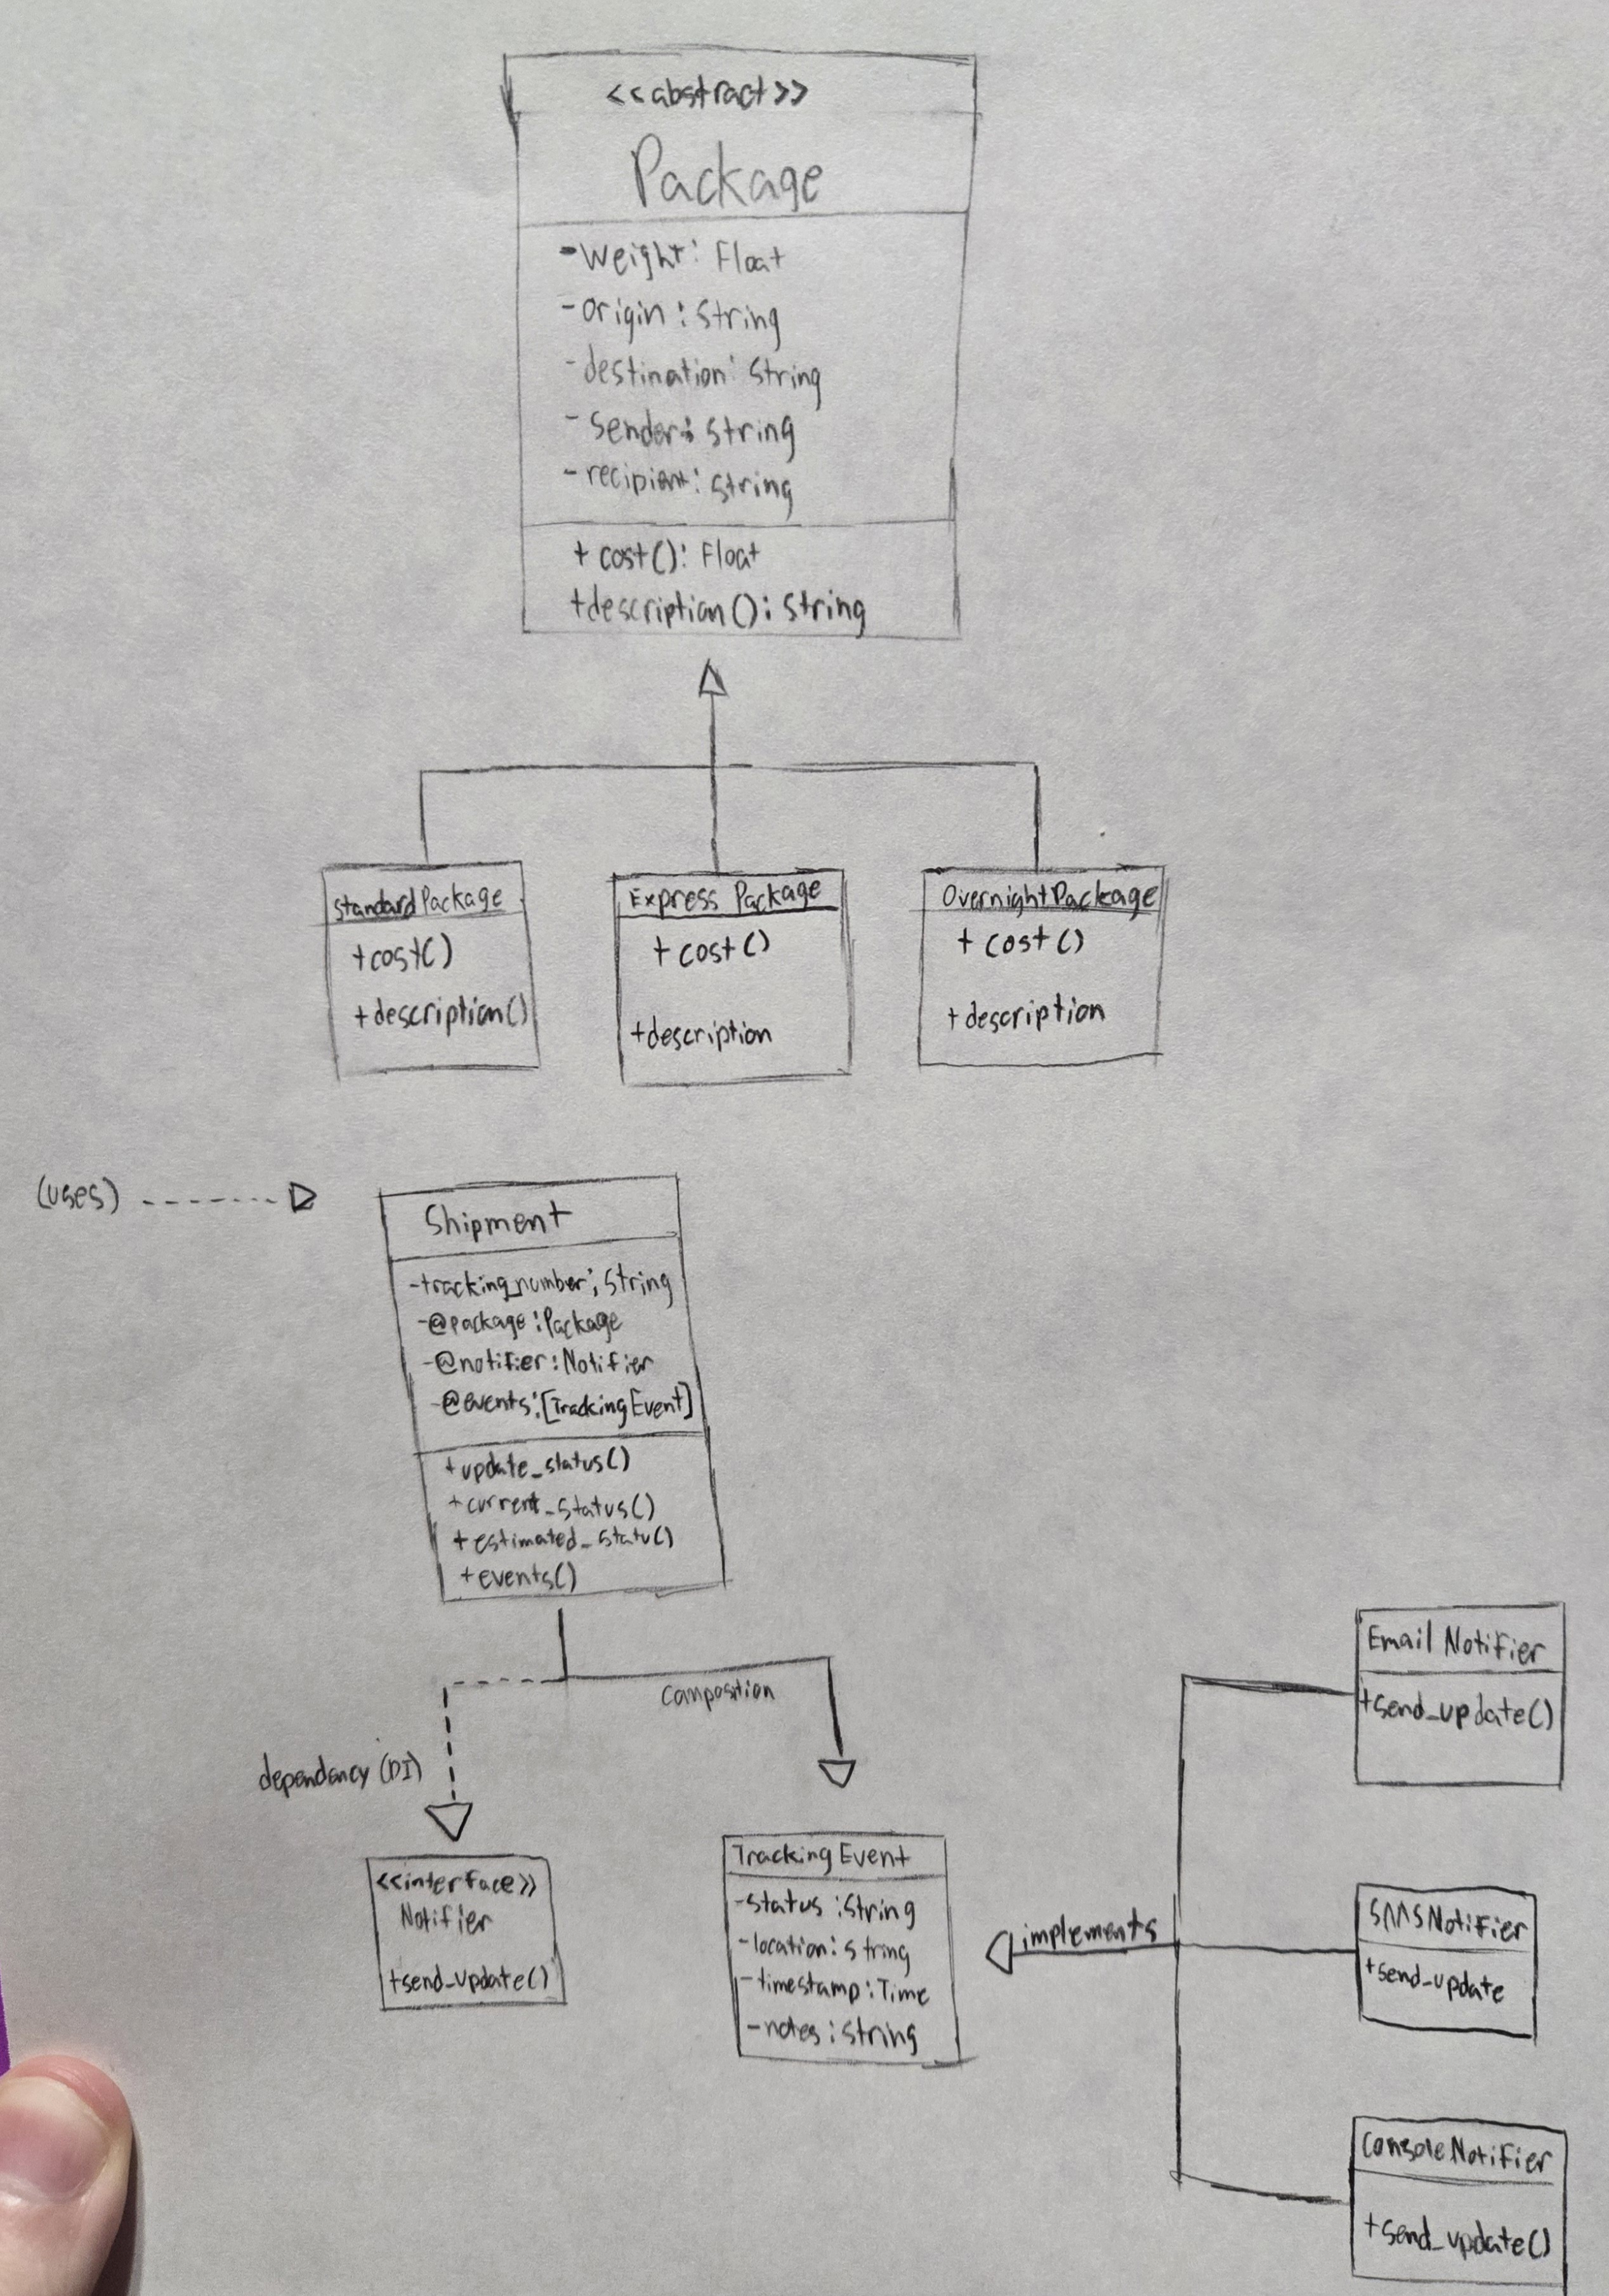 <<abstract>>
Package
-weight: Float
-origin: String
-destination: String
-sender: String
-recipient: String
+ cost(): Float
+description(): String
StandardPackage
+cost()
+description()
Express Package
+ cost()
+description
OvernightPackage
+ cost()
+description
(uses)
Shipment
-tracking_number: String
-@package: Package
-@notifier: Notifier
-@events: [TrackingEvent]
+update_status()
+current_status()
+estimated_statu()
+events()
composition
dependancy (DI)
<<interface>>
Notifier
+send_update()
TrackingEvent
-status: String
-location: string
-timestamp: Time
-notes: String
implements
Email Notifier
+send_update()
SMSNotifier
+send_update
ConsoleNotifier
+send_update()